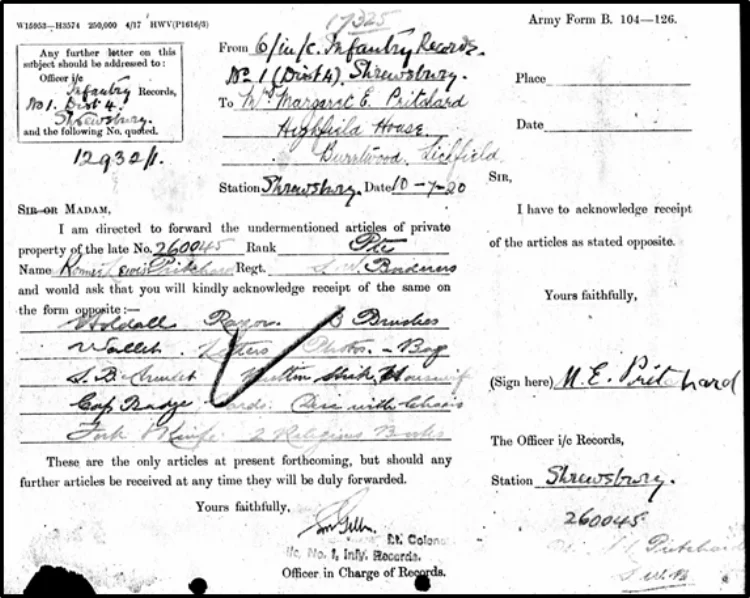 W15953—H3574 250,000 4/17 HWV(P1616/3)
17325
Army Form B. 104—126.
Any further letter on this
subject should be addressed to:
Officer i/c
Infantry Records,
No 1. Dist 4.
Shrewsbury.
and the following No. quoted.
12932/1.
From O/in/c. Infantry Records.
No 1 (Dist 4). Shrewsbury.
To Mrs Margaret E. Pritchard
Highfield House.
Lichfield
Station Shrewsbury. Date 10-7-20
SIR OR MADAM,
I am directed to forward the undermentioned articles of private
property of the late No. 260045 Rank Pte
Name Lewis Pritchard Regt. S. W. Borderers
and would ask that you will kindly acknowledge receipt of the same on
the form opposite:—
Holdall Razor. 3 Brushes
Wallet. Letters Photos. - Bag
Button Stick. Housewif
Cap Badge Cards. Disc with Chain
Fork Knife. 2 Religious Books
These are the only articles at present forthcoming, but should any
further articles be received at any time they will be duly forwarded.
Yours faithfully,
Lt. Colone
i/c. No. 1, Infy. Records.
Officer in Charge of Records.
Place
Date
SIR,
I have to acknowledge receipt
of the articles as stated opposite.
Yours faithfully,
(Sign here) M. E. Pritchard
The Officer i/c Records,
Station Shrewsbury.
260045
Pritchard
S. W. B